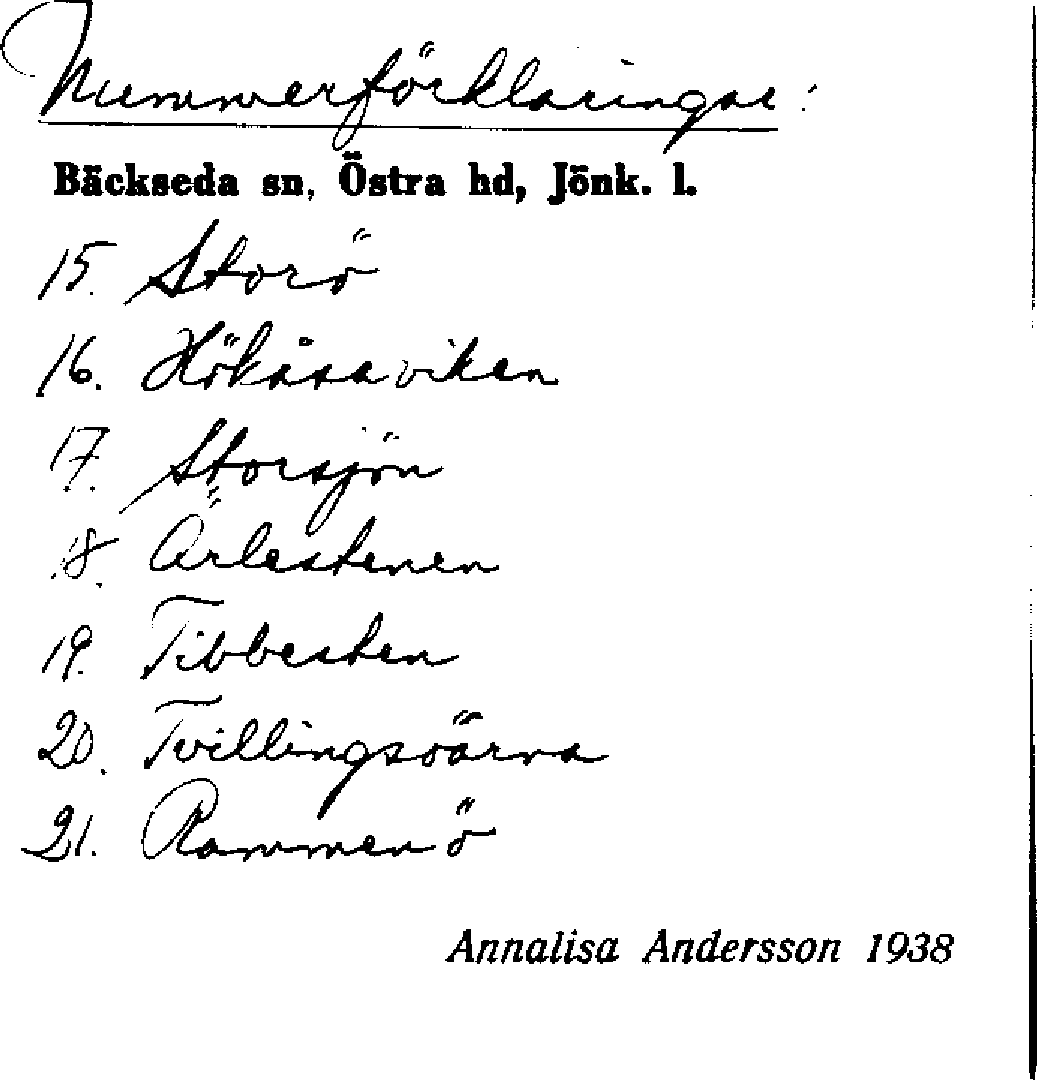 Nummerförklaringar:
Bäckseda sn, Östra hd, Jönk. l.
15. Storö
16. Hökåsaviken
17. Storsjön
18. Ärlestenen
19. Tibbesten
20. Tvillingsöarna
21. Rammenö
Annalisa Andersson 1938